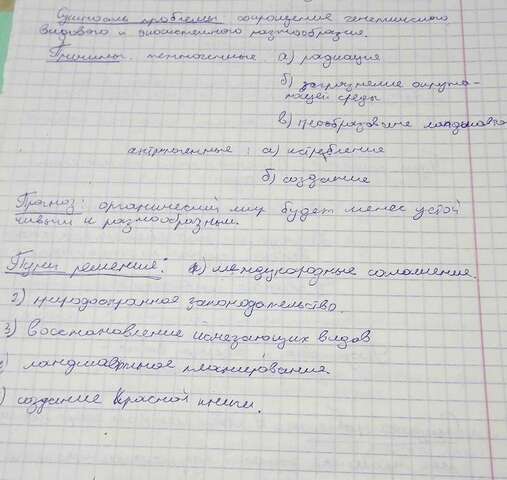 Сущность проблемы сокращения генетического
видового и экосистемного разнообразия.
Причины: техногенные а) радиация
б) загрязнение окружа-
ющей среды
в) преобразование ландшафта
антропогенные: а) истребление
б) создание
Прогноз: органический мир будет менее устой
чивым и разнообразным.
Пути решения: 1) международные соглашение.
2) природоохранное законодательство.
3) восстановление исчезающих видов
) ландшафтное планирование.
) создание Красной книги.